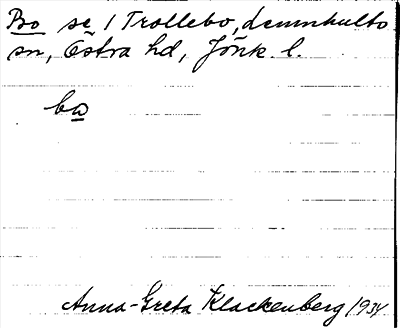 Bo se / Trollebo, Lemnhults
sn, Östra hd, Jönk. l.
bω
Anna-Greta Klackenberg 1934